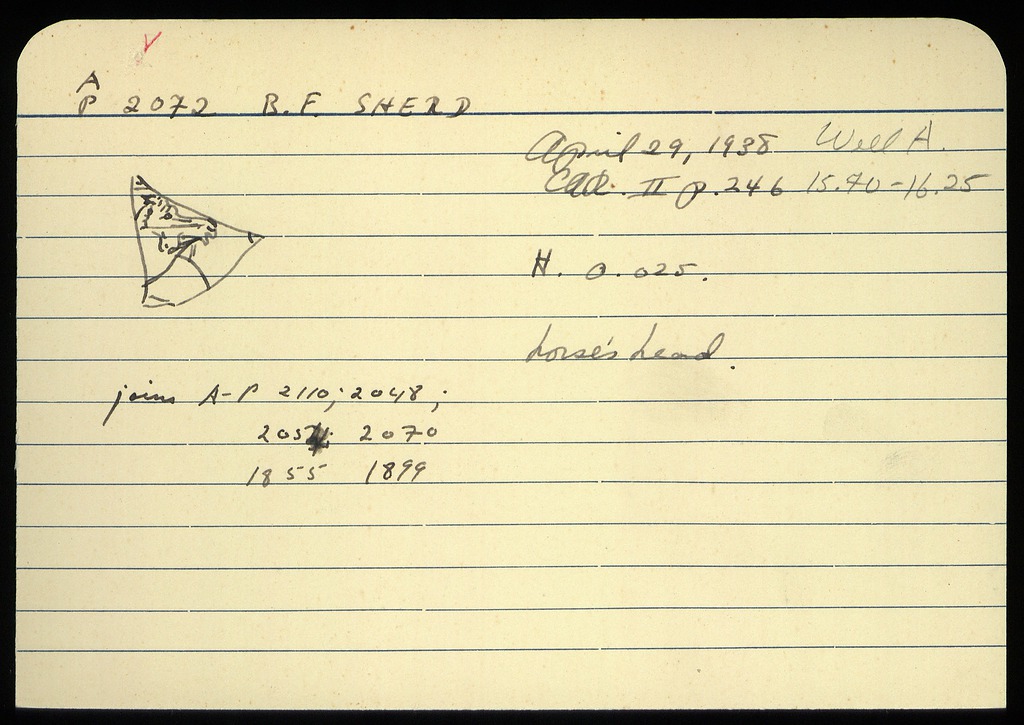 A
P 2072 B.F. SHERD
April 29, 1938 Well A.
II p. 246 15.40-16.25
H. 0.025.
horse's head.
joins A-P 2110; 2048;
2070
1855 1899